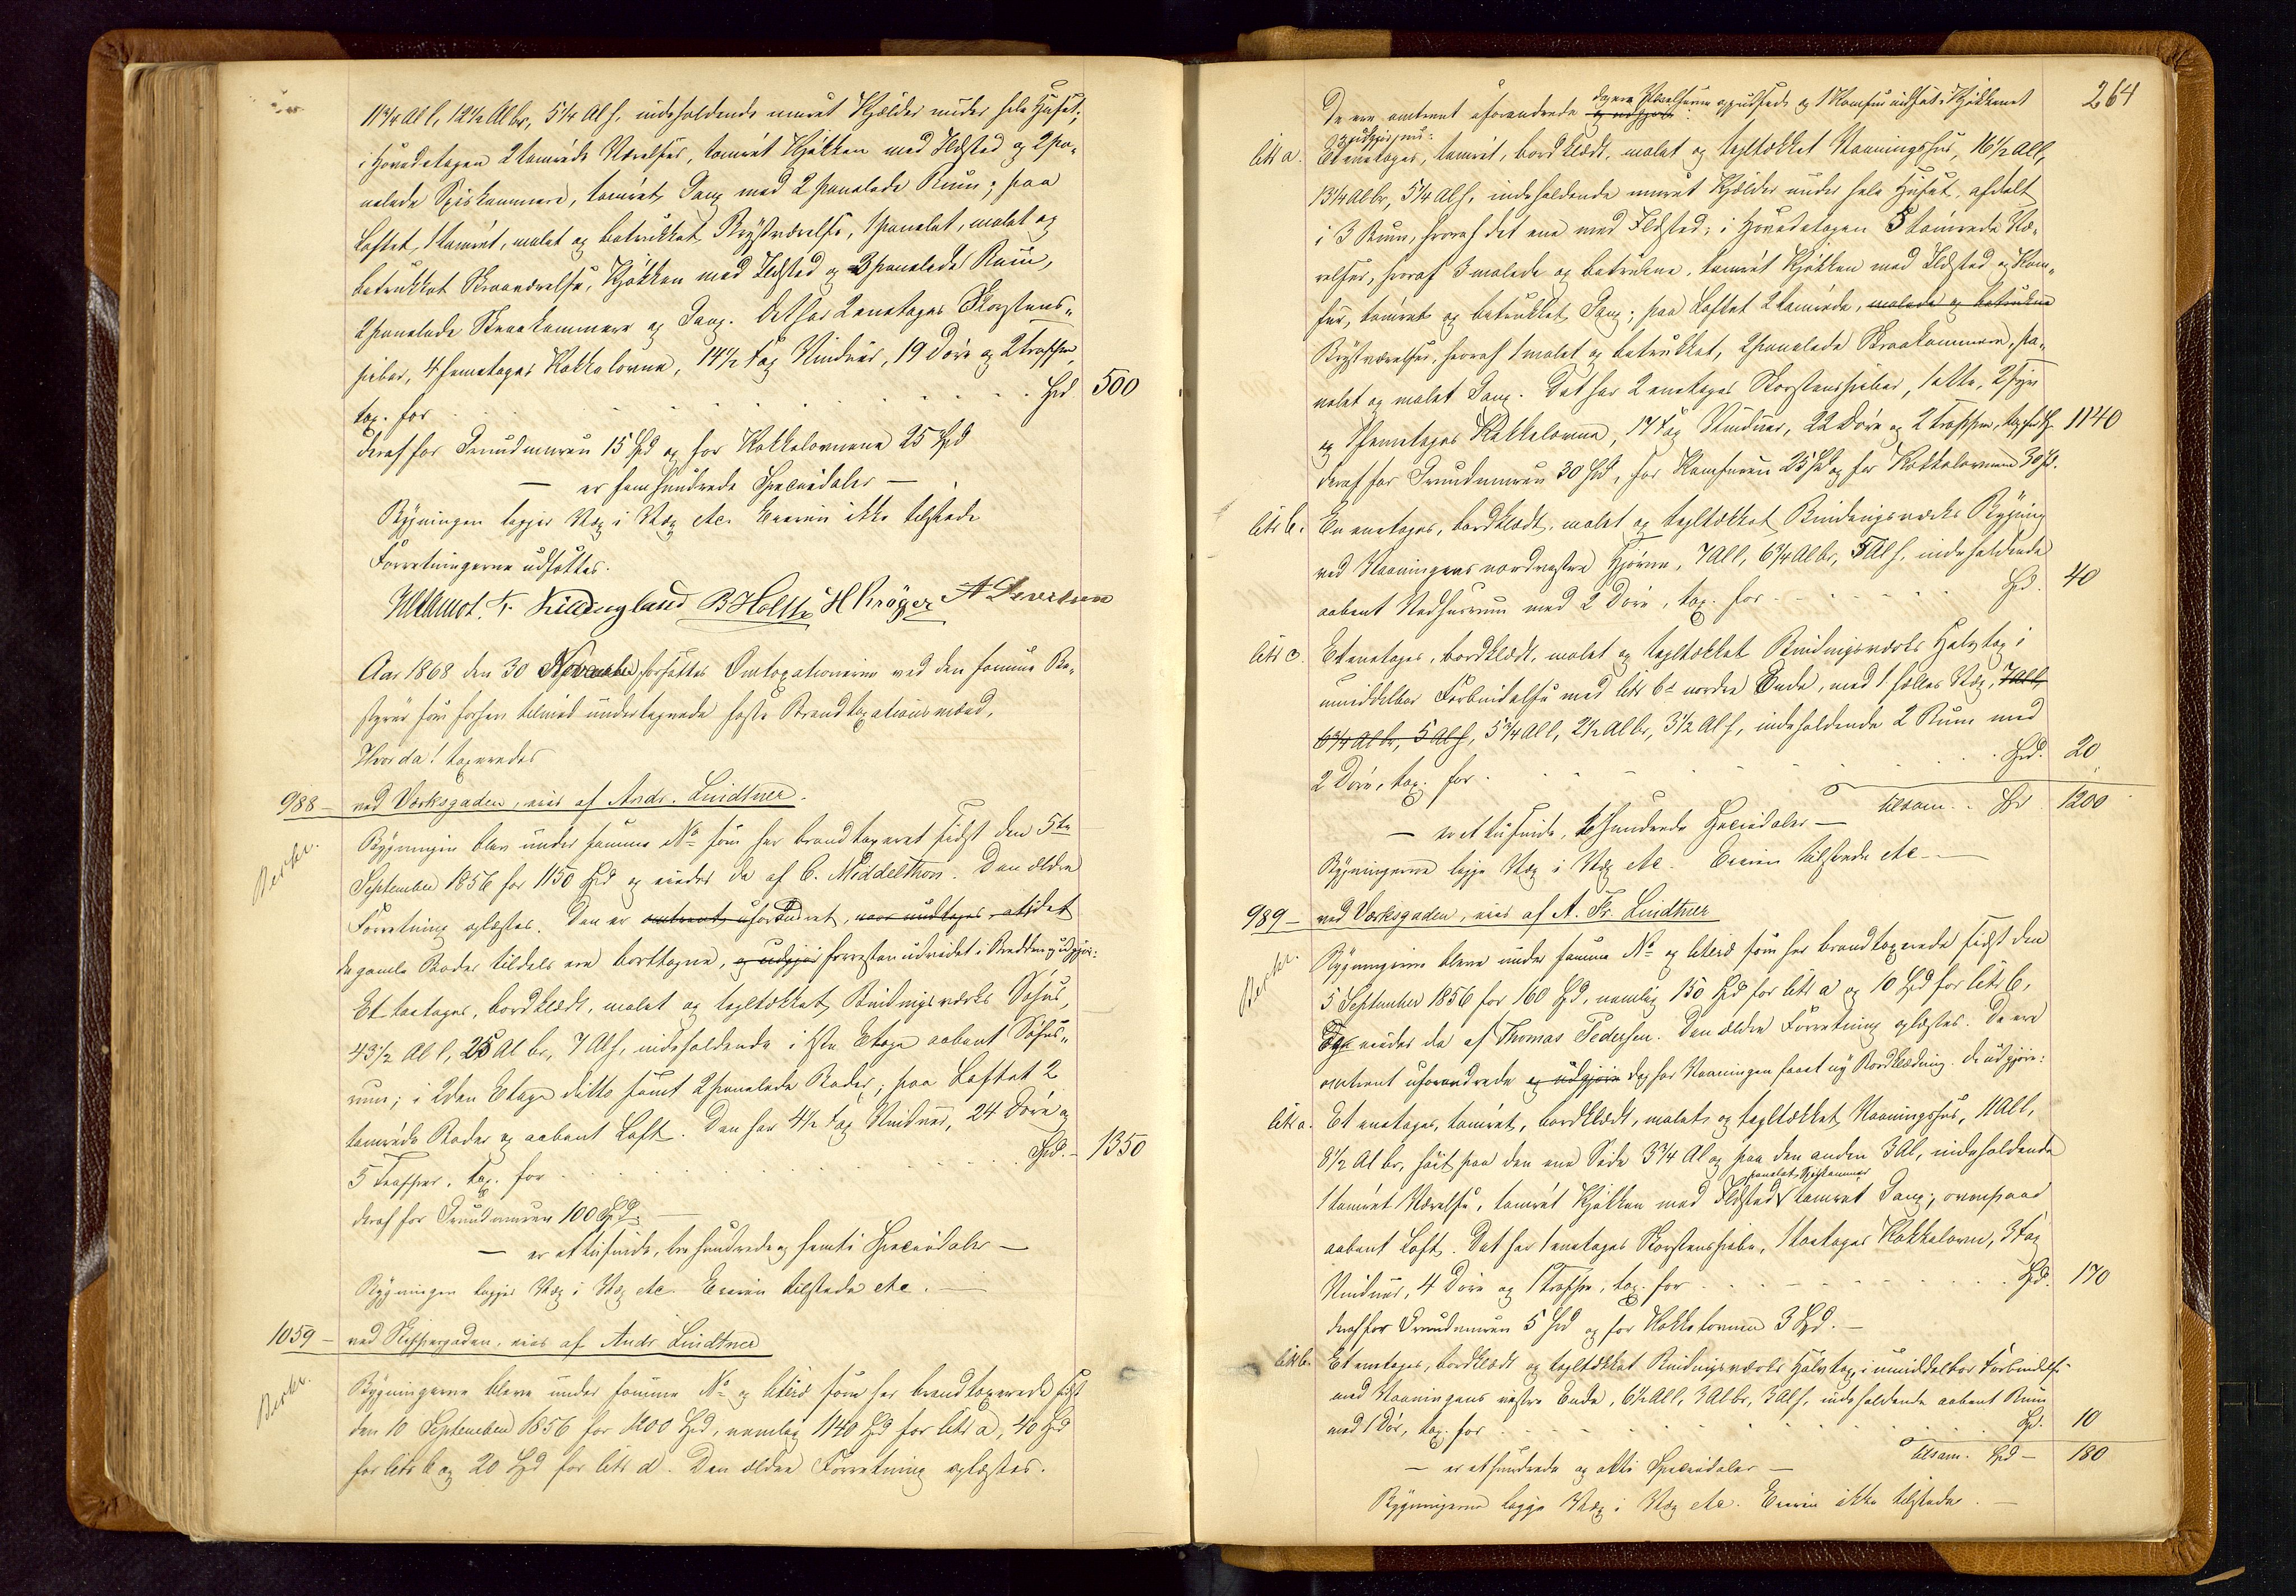 11¾ Al l, 12½ Al br, 5¼ Al h, indeholdende muret Kjælder under hele Huset;
i Hovedetagen 2 tømrede Værelser, tømret Kjøkken med Ildsted og 2 pa-
nelede Spiskammere, tømret Gang med 2 panelede Rum; paa
Loftet 1 tømret, malet og betrukket Brystværelse, 1 panelet, malet og
betrukket Skraaværelse, Kjøkken med Ildsted og 3 panelede Rum,
2 panelede Skraakammere og Gang. Det har 2 enetages Skorstens-
piber, 4 femetages Kakkelovne, 14½ Fag Vinduer, 19 Døre og 2 Trapper,
tax. for . . . Spd 500
deraf for Grundmuren 15 Spd og for Kakkelovnene 25 Spd
— er fem hundrede Speciedaler —
Bygningen ligger Væg i Væg etc. Eieren ikke tilstede
Forretningerne udsattes.
F. Killingland B Holst H Krøger A Sivertsen
Aar 1868 den 30 November fortsattes Omtaxationerne ved den samme Be-
styrer som forhen tilmed undertegnede faste Brandtaxationsmænd,
Hvor da! taxeredes
988 — ved Værksgaden, eies af Andr. Lindtner.
Berkr.
Bygningen blev under samme No som her brandtaxeret sidst den 5te
September 1856 for 1150 Spd og eiedes da af C. Middelthon. Den ældre
Forretning oplæstes. Den er omtrent uforandret, naar undtages, at det
de gamle Boder tildels ere borttagne, og udgjør forresten udvidet i Bredden og udgjør:
Et toetages, bordklædt, malet og tegltækket Bindingsværks Søhus,
43½ Al l, 25 Al br, 7 Al h, indeholdende i 1ste Etage aabent Søhus-
rum; i 2den Etage ditto samt 2 panelede Boder; paa Loftet 2
tømrede Boder og aabent Loft. Den har 4½ Fag Vinduer, 24 Døre og
5 Trapper, tax. for . . . Spd. — 1350
deraf for Grundmuren 100 Spd. —
— er et tusinde, tre hundrede og femti Speciedaler —
Bygningen ligger Væg i Væg etc. Eieren tilstede etc. —
1059 — ved Skippergaden, eies af Andr Lindtner
Berkr.
Bygningerne bleve under samme No og litera som her brandtaxerede sidst
den 10 September 1856 for 1200 Spd, nemlig 1140 Spd for litr a, 40 Spd
for litr b og 20 Spd for litr d. Den ældre Forretning oplæstes.
264
De ere omtrent uforandrede og udgjøre dog ere Værelserne opudsede og 1 Komfur indsat i Kjøkkenet
og udgjør nu:
litr a. Et enetages, tømret, bordklædt, malet og tegltækket Vaaningshus, 16½ Al l,
13¼ Al br, 5¼ Al h, indeholdende muret Kjælder under hele Huset, afdelt
i 3 Rum, hvoraf det ene med Ildsted; i Hovedetagen 5 tømrede Væ-
relser, hvoraf 3 malede og betrukne, tømret Kjøkken med Ildsted og Kom-
fur, tømret og betrukket Gang; paa Loftet 2 tømrede, malede og betrukne
Brystværelser, hvoraf 1 malet og betrukket, 2 panelede Skraakammere, pa-
nelet og malet Gang. Det har 2 enetages Skorstenspiber,
og femetages Kakkelovne, 17 Fag Vinduer, 22 Døre og 2 Trapper, tax for Sp. 1140
deraf for Grundmuren 30 Spd, for Komfuren 25 Spd og for Kakkelovnene 30 Sp.
litr b. En enetages, bordklædt, malet og tegltækket Bindingsværks Bygning
ved Vaaningens nordvestre Hjørne, 7 Al l, 6¾ Al br, 5 Al h, indeholdende
aabent Vedhusrum med 2 Døre, tax. for . . . Spd. 40
litr c. Et enetages, bordklædt, malet og tegltækket Bindingsværks Halvtag i
umiddelbar Forbindelse med litr b's nordre Ende, med 1 fælles Væg, 7 Al l,
6¾ Al br, 5 Al h, 5¾ Al l, 2½ Al br, 3½ Al h, indeholdende 2 Rum med
2 Døre, tax. for . . . Spd. 20
tilsam. . Spd 1200
— er et tusinde, to hundrede Speciedaler —
Bygningerne ligge Væg i Væg etc. Eieren tilstede etc —
989 — ved Værksgaden, eies af A. Fr. Lindtner
Berkr.
Bygningerne bleve under samme No og litera som her brandtaxerede sidst den
5 September 1856 for 160 Spd, nemlig 150 Spd for litr a og 10 Spd for litr b,
og eiedes da af Thomas Pedersen. Den ældre Forretning oplæstes. De ere
omtrent uforandrede og udgjøre dog har Vaaningen faaet ny Bordklædning. De udgjøre:
litr a. Et enetages, tømret, bordklædt, malet og tegltækket Vaaningshus, 11 Al l,
8½ Al br, høit paa den ene Side 3¾ Al og paa den anden 3 Al, indeholdende
panelet Spiskammer
1 tømret Værelse, tømret Kjøkken med Ildsted tømret Gang; ovenpaa
aabent Loft. Det har 1 enetages Skorstenspibe, 1 toetages Kakkelovn, 3 Fag
Vinduer, 4 Døre og 1 Trappe, tax. for . . . Spd. 170
deraf for Grundmuren 5 Spd og for Kakkelovnen 3 Spd. —
litr b. Et enetages, bordklædt og tegltækket Bindingsværks Halvtag i umiddelbar Forbindelse
med Vaaningens vestre Ende, 6½ Al l, 3 Al br, 3 Al h, indeholdende aabent Rum
med 1 Dør, tax. for . . . Spd. 10
tilsam. Spd — 180
— er et hundrede og otti Speciedaler —
Bygningerne ligge Væg i Væg etc. Eieren ikke tilstede. —